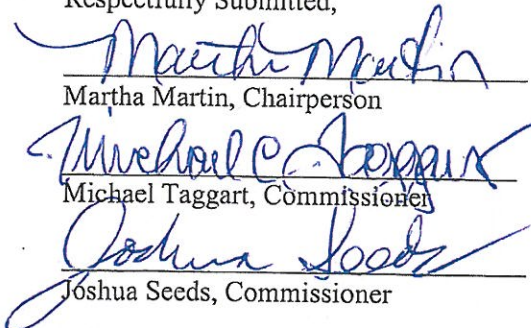 Respectfully Submitted,
Martha Martin
Martha Martin, Chairperson
Michael C Taggart
Michael Taggart, Commissioner
Joshua Seeds
Joshua Seeds, Commissioner